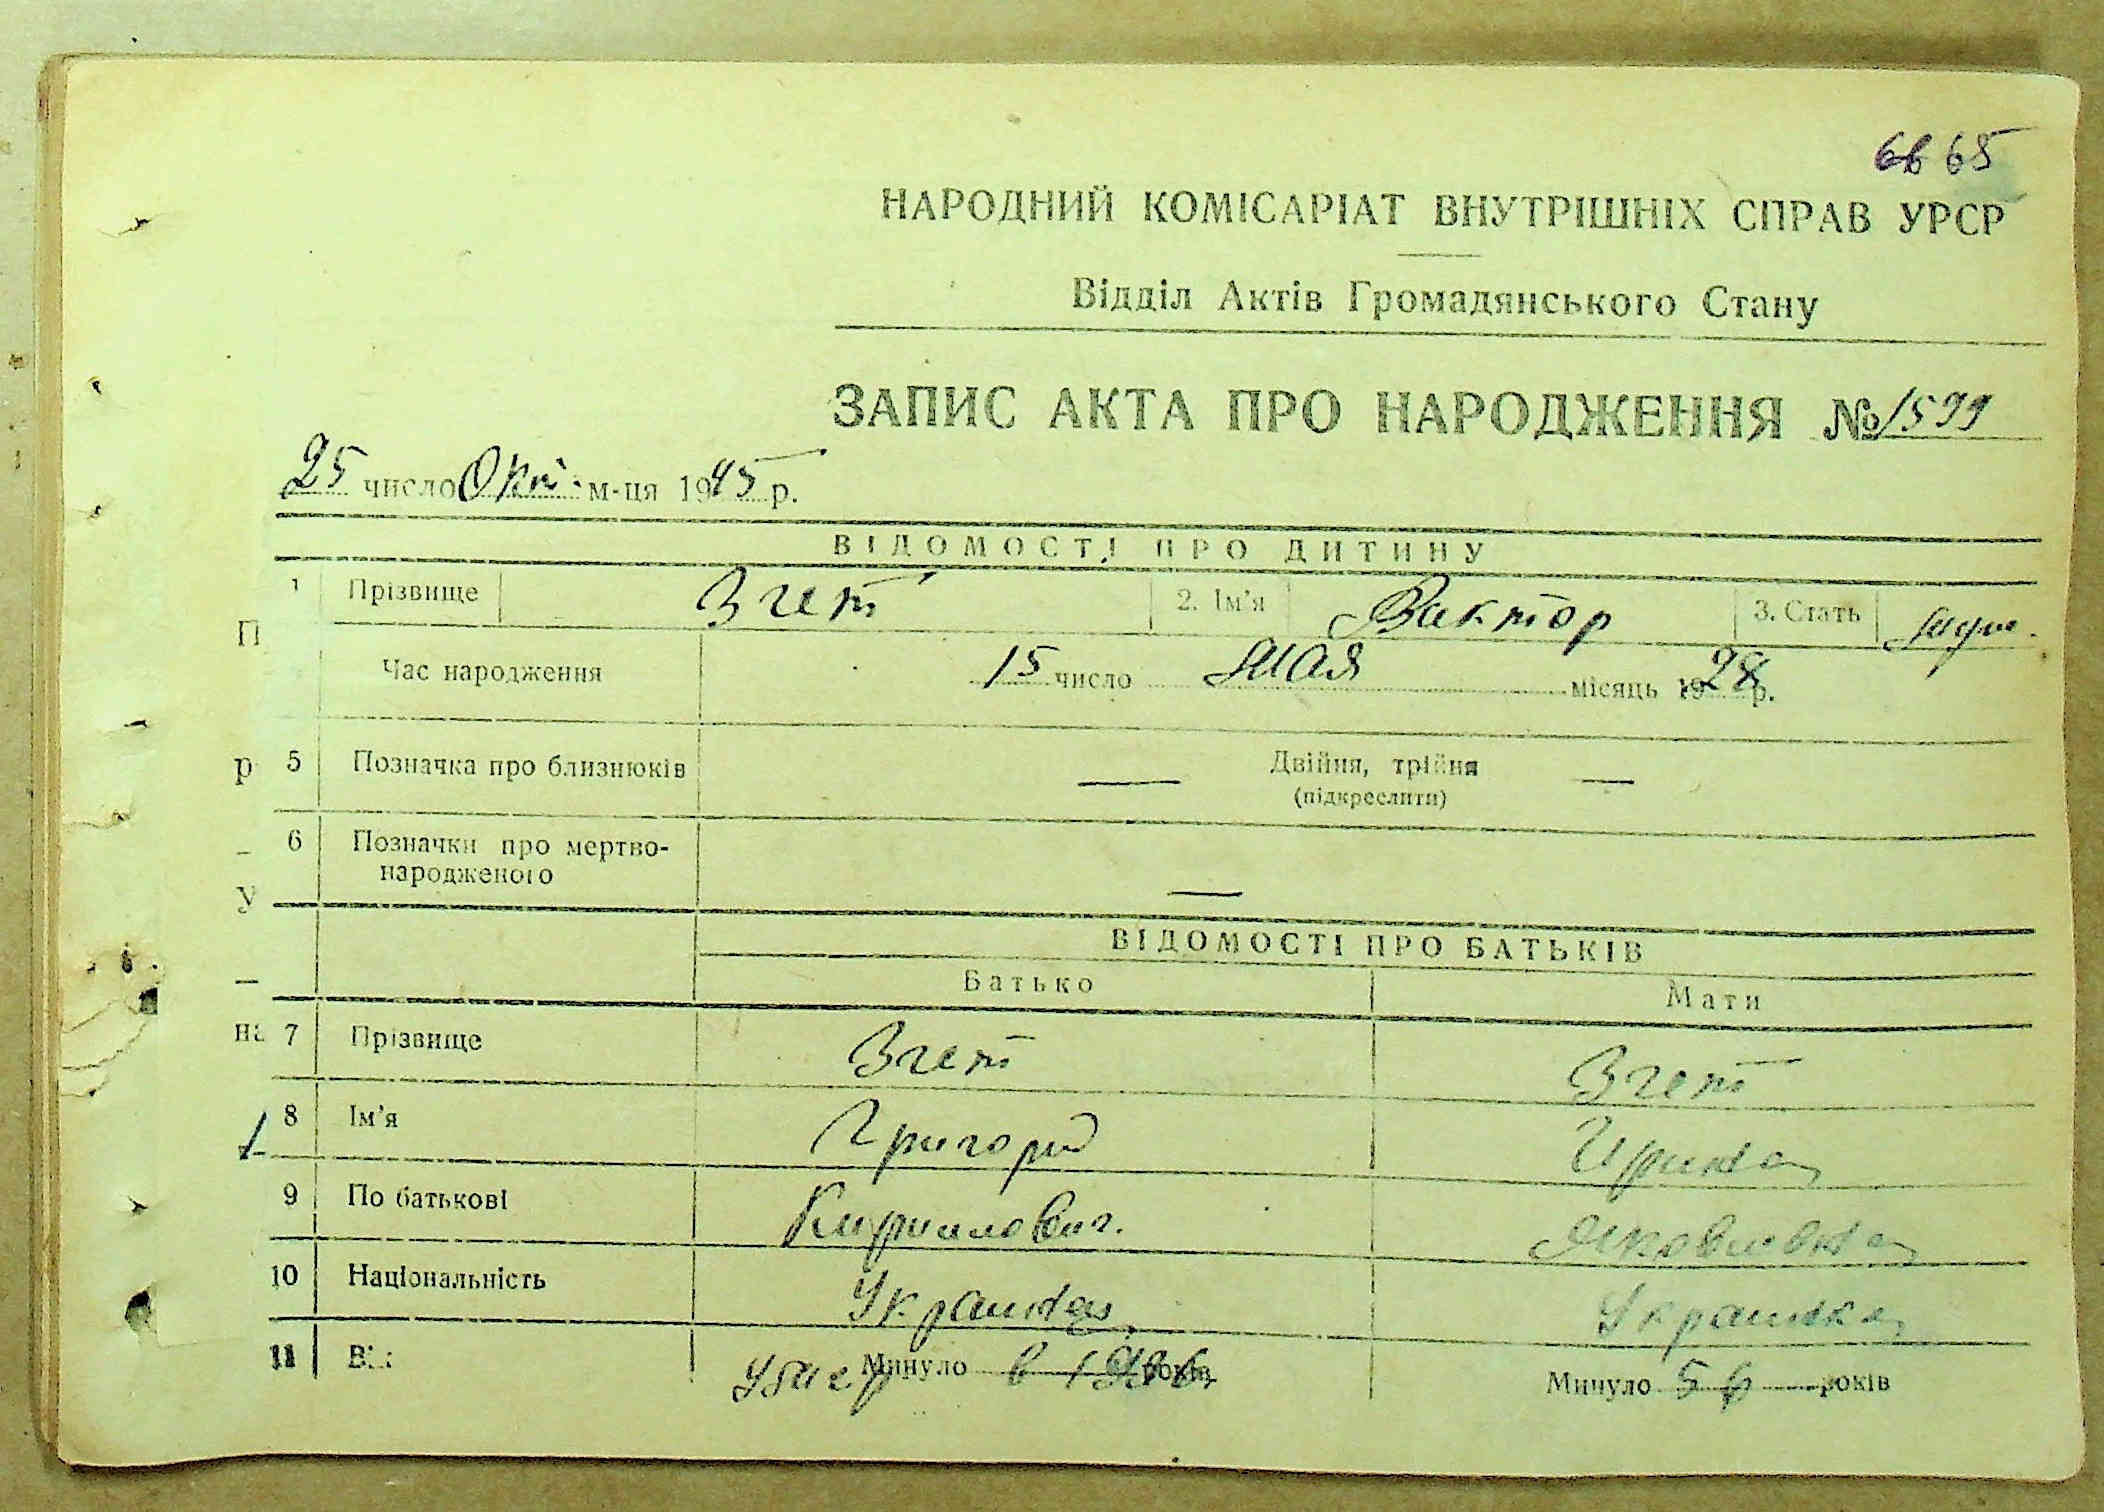 65
НАРОДНИЙ КОМІСАРІАТ ВНУТРІШНІХ СПРАВ УРСР
Відділ Актів Громадянського Стану
ЗАПИС АКТА ПРО НАРОДЖЕННЯ № 1599
25 число Окт. м-ця 1945 р.
ВІДОМОСТІ ПРО ДИТИНУ
1 Прізвище Згет 2. Ім'я Виктор 3. Стать муж.
Час народження 15 число мая місяць 1928 р.
5 Позначка про близнюків — Двійня, трійня —
(підкреслити)
6 Позначки про мертво-
народженого —
ВІДОМОСТІ ПРО БАТЬКІВ
Батько Мати
7 Прізвище Згет Згет
8 Ім'я Григорий Ирина
9 По батькові Кириллович. Яковлевна
10 Національність Украинец Украинка
11 Вік Умер Минуло в 1936 років Минуло 56 років
П
р
У
на